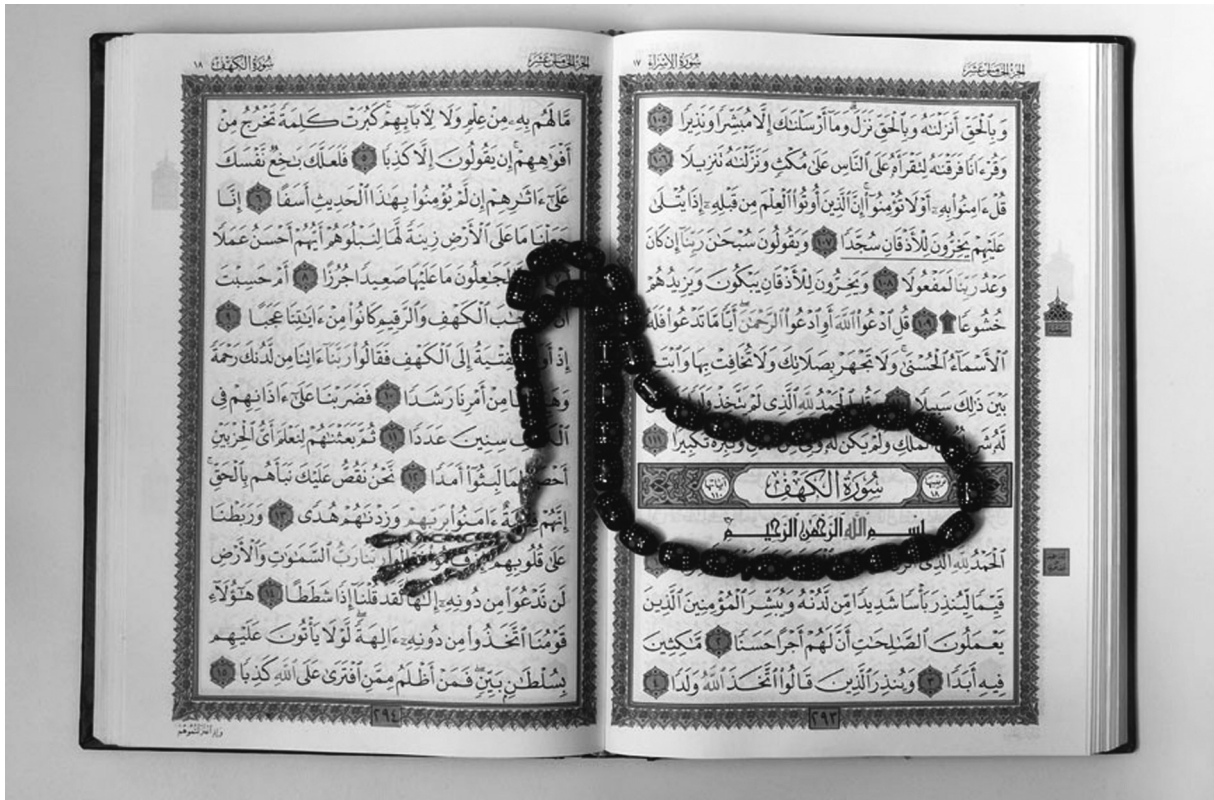 الجزء الخامس عشر سُورَةُ الإِسْرَاءِ ١٧
وَبِٱلْحَقِّ أَنزَلْنَٰهُ وَبِٱلْحَقِّ نَزَلَ ۗ وَمَآ أَرْسَلْنَٰكَ إِلَّا مُبَشِّرًا وَنَذِيرًا ١٠٥
وَقُرْءَانًا فَرَقْنَٰهُ لِتَقْرَأَهُۥ عَلَى ٱلنَّاسِ عَلَىٰ مُكْثٍ وَنَزَّلْنَٰهُ تَنزِيلًا ١٠٦
قُلْ ءَامِنُوا۟ بِهِۦٓ أَوْ لَا تُؤْمِنُوٓا۟ ۚ إِنَّ ٱلَّذِينَ أُوتُوا۟ ٱلْعِلْمَ مِن قَبْلِهِۦٓ إِذَا يُتْلَىٰ
عَلَيْهِمْ يَخِرُّونَ لِلْأَذْقَانِ سُجَّدًا ١٠٧ وَيَقُولُونَ سُبْحَٰنَ رَبِّنَآ إِن كَانَ
وَعْدُ رَبِّنَا لَمَفْعُولًا ١٠٨ وَيَخِرُّونَ لِلْأَذْقَانِ يَبْكُونَ وَيَزِيدُهُمْ
خُشُوعًا ۩ ١٠٩ قُلِ ٱدْعُوا۟ ٱللَّهَ أَوِ ٱدْعُوا۟ ٱلرَّحْمَٰنَ ۖ أَيًّا مَّا تَدْعُوا۟ فَلَهُ
ٱلْأَسْمَآءُ ٱلْحُسْنَىٰ ۚ وَلَا تَجْهَرْ بِصَلَاتِكَ وَلَا تُخَافِتْ بِهَا وَٱبْتَغِ
بَيْنَ ذَٰلِكَ سَبِيلًا ٱلْحَمْدُ لِلَّهِ ٱلَّذِى لَمْ يَتَّخِذْ
لَّهُۥ ٱلْمُلْكِ وَلَمْ يَكُن لَّهُۥ وَكَبِّرْهُ تَكْبِيرًا ١١١
ترتيبها ١٨ سُورَةُ الكَهْفِ آياتها ١١٠
بِسْمِ ٱللَّهِ ٱلرَّحْمَٰنِ ٱلرَّحِيمِ
ٱلْحَمْدُ لِلَّهِ ٱلَّذِىٓ
قَيِّمًا لِّيُنذِرَ بَأْسًا شَدِيدًا مِّن لَّدُنْهُ وَيُبَشِّرَ ٱلْمُؤْمِنِينَ ٱلَّذِينَ
يَعْمَلُونَ ٱلصَّٰلِحَٰتِ أَنَّ لَهُمْ أَجْرًا حَسَنًا ٢ مَّٰكِثِينَ
فِيهِ أَبَدًا ٣ وَيُنذِرَ ٱلَّذِينَ قَالُوا۟ ٱتَّخَذَ ٱللَّهُ وَلَدًا ٤
٢٩٣
الجزء الخامس عشر سُورَةُ الكَهْفِ ١٨
مَّا لَهُم بِهِۦ مِنْ عِلْمٍ وَلَا لِـَٔابَآئِهِمْ ۚ كَبُرَتْ كَلِمَةً تَخْرُجُ مِنْ
أَفْوَٰهِهِمْ ۚ إِن يَقُولُونَ إِلَّا كَذِبًا ٥ فَلَعَلَّكَ بَٰخِعٌ نَّفْسَكَ
عَلَىٰٓ ءَاثَٰرِهِمْ إِن لَّمْ يُؤْمِنُوا۟ بِهَٰذَا ٱلْحَدِيثِ أَسَفًا ٦ إِنَّا
جَعَلْنَا مَا عَلَى ٱلْأَرْضِ زِينَةً لَّهَا لِنَبْلُوَهُمْ أَيُّهُمْ أَحْسَنُ عَمَلًا
لَجَٰعِلُونَ مَا عَلَيْهَا صَعِيدًا جُرُزًا ٨ أَمْ حَسِبْتَ
أَنَّ ٱلْكَهْفِ وَٱلرَّقِيمِ كَانُوا۟ مِنْ ءَايَٰتِنَا عَجَبًا ٩
إِذْ أَوَى ٱلْفِتْيَةُ إِلَى ٱلْكَهْفِ فَقَالُوا۟ رَبَّنَآ ءَاتِنَا مِن لَّدُنكَ رَحْمَةً
وَهَيِّئْ لَنَا مِنْ أَمْرِنَا رَشَدًا ١٠ فَضَرَبْنَا عَلَىٰٓ ءَاذَانِهِمْ فِى
ٱلْكَهْفِ سِنِينَ عَدَدًا ١١ ثُمَّ بَعَثْنَٰهُمْ لِنَعْلَمَ أَىُّ ٱلْحِزْبَيْنِ
أَحْصَىٰ لِمَا لَبِثُوٓا۟ أَمَدًا ١٢ نَّحْنُ نَقُصُّ عَلَيْكَ نَبَأَهُم بِٱلْحَقِّ ۚ
إِنَّهُمْ فِتْيَةٌ ءَامَنُوا۟ بِرَبِّهِمْ وَزِدْنَٰهُمْ هُدًى ١٣ وَرَبَطْنَا
عَلَىٰ قُلُوبِهِمْ إِذْ قَامُوا۟ فَقَالُوا۟ رَبُّنَا رَبُّ ٱلسَّمَٰوَٰتِ وَٱلْأَرْضِ
لَن نَّدْعُوَا۟ مِن دُونِهِۦٓ إِلَٰهًا ۖ لَّقَدْ قُلْنَآ إِذًا شَطَطًا ١٤ هَٰٓؤُلَآءِ
قَوْمُنَا ٱتَّخَذُوا۟ مِن دُونِهِۦٓ ءَالِهَةً ۖ لَّوْلَا يَأْتُونَ عَلَيْهِم
بِسُلْطَٰنٍۭ بَيِّنٍ ۖ فَمَنْ أَظْلَمُ مِمَّنِ ٱفْتَرَىٰ عَلَى ٱللَّهِ كَذِبًا ١٥
٢٩٤
وَإِذِ ٱعْتَزَلْتُمُوهُمْ